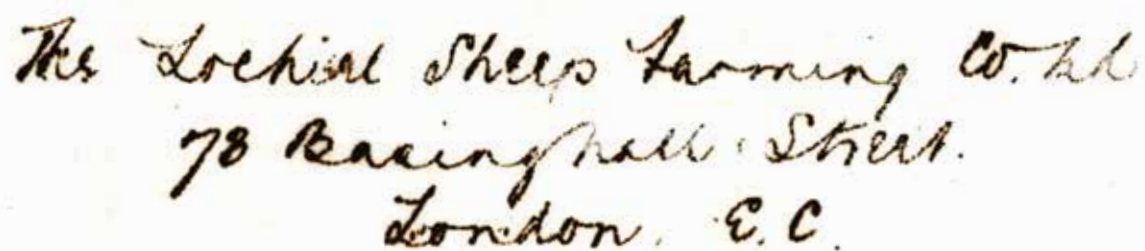 The Lochiel Sheep Farming Co. Ld
78 Basinghall Street.
London. E.C.